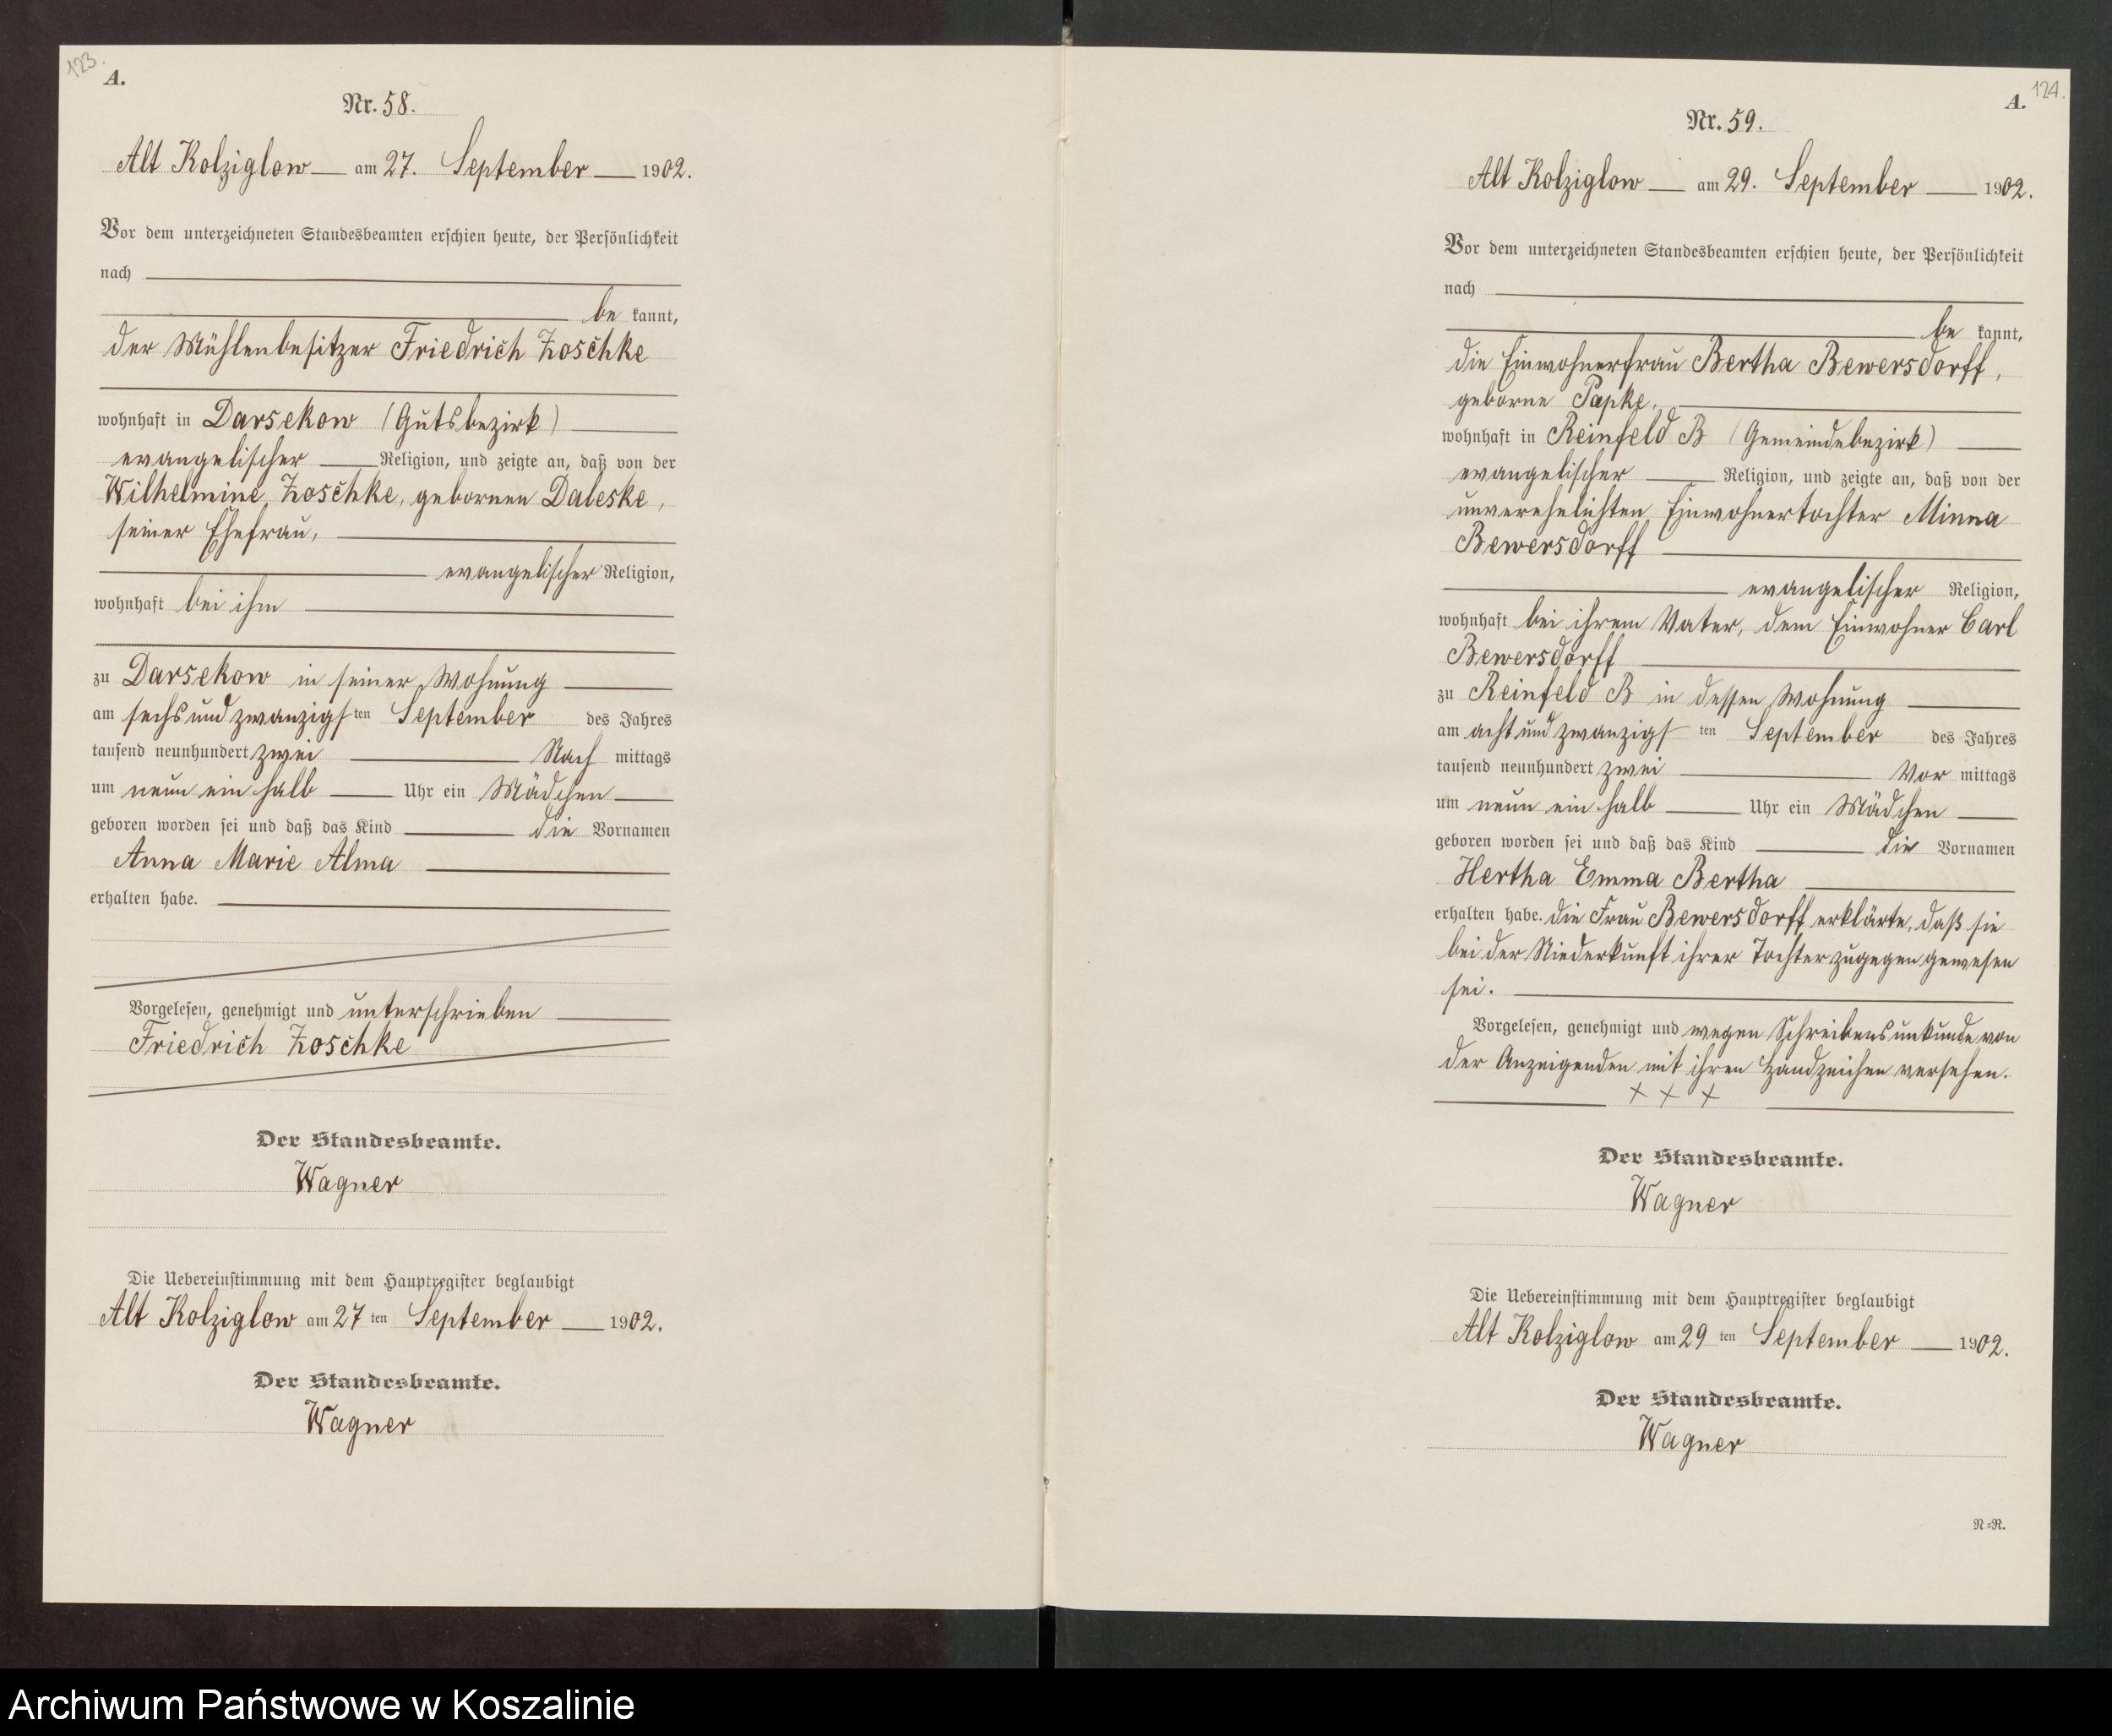 123.
A.
Nr. 58.
Alt Kolziglow am 27. September 1902.
Vor dem unterzeichneten Standesbeamten erschien heute, der Persönlichkeit
nach
be kannt,
der Mühlenbesitzer Friedrich Zoschke
wohnhaft in Darsekow (Gutsbezirk)
evangelischer Religion, und zeigte an, daß von der
Wilhelmine Zoschke, gebornen Daleske,
seiner Ehefrau,
evangelischer Religion,
wohnhaft bei ihm
zu Darsekow in seiner Wohnung
am sechs und zwanzigsten September des Jahres
tausend neunhundert zwei Nach mittags
um neun ein halb Uhr ein Mädchen
geboren worden sei und daß das Kind die Vornamen
Anna Marie Alma
erhalten habe.
Vorgelesen, genehmigt und unterschrieben
Friedrich Zoschke
Der Standesbeamte.
Wagner
Die Uebereinstimmung mit dem Hauptregister beglaubigt
Alt Kolziglow am 27 ten September 1902.
Der Standesbeamte.
Wagner
124.
A.
Nr. 59.
Alt Kolziglow am 29. September 1902.
Vor dem unterzeichneten Standesbeamten erschien heute, der Persönlichkeit
nach
be kannt,
die Einwohnerfrau Bertha Bewersdorff,
geborne Papke,
wohnhaft in Reinfeld B (Gemeindebezirk)
evangelischer Religion, und zeigte an, daß von der
unverehelichten Einwohnertochter Minna
Bewersdorff
evangelischer Religion,
wohnhaft bei ihrem Vater, dem Einwohner Carl
Bewersdorff
zu Reinfeld B in dessen Wohnung
am acht und zwanzigsten September des Jahres
tausend neunhundert zwei Vor mittags
um neun ein halb Uhr ein Mädchen
geboren worden sei und daß das Kind die Vornamen
Hertha Emma Bertha
erhalten habe. Die Frau Bewersdorff erklärte, daß sie
bei der Niederkunft ihrer Tochter zugegen gewesen
sei.
Vorgelesen, genehmigt und wegen Schreibensunkunde von
der Anzeigenden mit ihren Handzeichen versehen.
+ + +
Der Standesbeamte.
Wagner
Die Uebereinstimmung mit dem Hauptregister beglaubigt
Alt Kolziglow am 29 ten September 1902.
Der Standesbeamte.
Wagner
N=R.
Archiwum Państwowe w Koszalinie